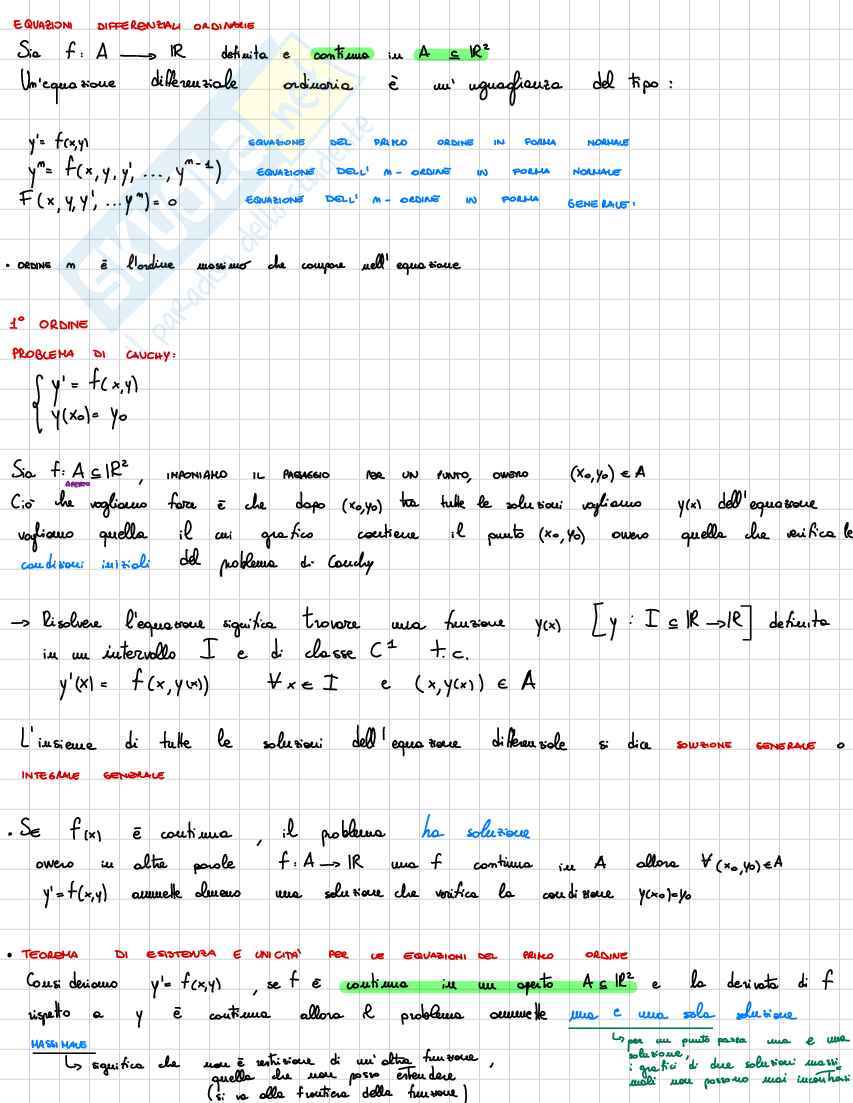 EQUAZIONI DIFFERENZIALI ORDINARIE
Sia f: A → IR definita e continua in A ⊆ IR²
Un'equazione differenziale ordinaria è un'uguaglianza del tipo:
y' = f(x,y) EQUAZIONE DEL PRIMO ORDINE IN FORMA NORMALE
yᵐ = f(x, y, y', ..., yᵐ⁻¹) EQUAZIONE DELL' m - ORDINE IN FORMA NORMALE
F(x, y, y', ... yᵐ) = 0 EQUAZIONE DELL' m - ORDINE IN FORMA GENERALE.
• ORDINE m è l'ordine massimo che compare nell'equazione
1° ORDINE
PROBLEMA DI CAUCHY:
{ y' = f(x,y)
y(x₀) = y₀
Sia f: A ⊆ IR², IMPONIAMO IL PASSAGGIO PER UN PUNTO, OVVERO (x₀,y₀) ∈ A
APERTO
Ciò che vogliamo fare è che dopo (x₀,y₀) tra tutte le soluzioni vogliamo y(x) dell'equazione
vogliamo quella il cui grafico contiene il punto (x₀,y₀) ovvero quella che verifica le
condizioni iniziali del problema di Cauchy
→ Risolvere l'equazione significa trovare una funzione y(x) [y: I ⊆ IR → IR] definita
in un intervallo I e di classe C¹ t.c.
y'(x) = f(x, y(x)) ∀ x ∈ I e (x, y(x)) ∈ A
L'insieme di tutte le soluzioni dell'equazione differenziale si dice SOLUZIONE GENERALE o
INTEGRALE GENERALE
• SE f(x) è continua, il problema ha soluzione
ovvero in altre parole f: A → IR una f continua in A allora ∀ (x₀,y₀) ∈ A
y' = f(x,y) ammette almeno una soluzione che verifica la condizione y(x₀)=y₀
• TEOREMA DI ESISTENZA E UNICITA' PER LE EQUAZIONI DEL PRIMO ORDINE
Consideriamo y' = f(x,y), se f è continua in un aperto A ⊆ IR² e la derivata di f
rispetto a y è continua allora il problema ammette una e una sola soluzione
MASSIMALE
↳ per un punto passa una e una
soluzione,
i grafici di due soluzioni massi
mali non possono mai incontrarsi
↳ significa che non è restrizione di un'altra funzione,
quella che non posso estendere
(si va alla frontiera della funzione)
SKUOLA.net
il paradiso dello studente